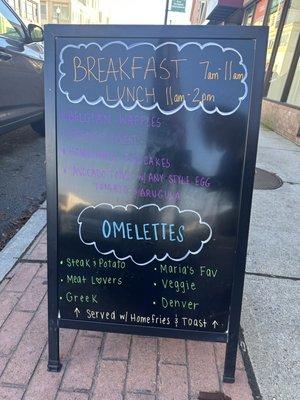 BREAKFAST 7am-11am
LUNCH 11am-2pm
BELGIAN WAFFLES
AVOCADO TOAST W/ ANY STYLE EGG
TOMATO ARUGULA
OMELETTES
• Steak & Potato
• Maria's Fav
• Meat Lovers
• Veggie
• Greek
• Denver
↑ Served w/ Homefries & Toast ↑